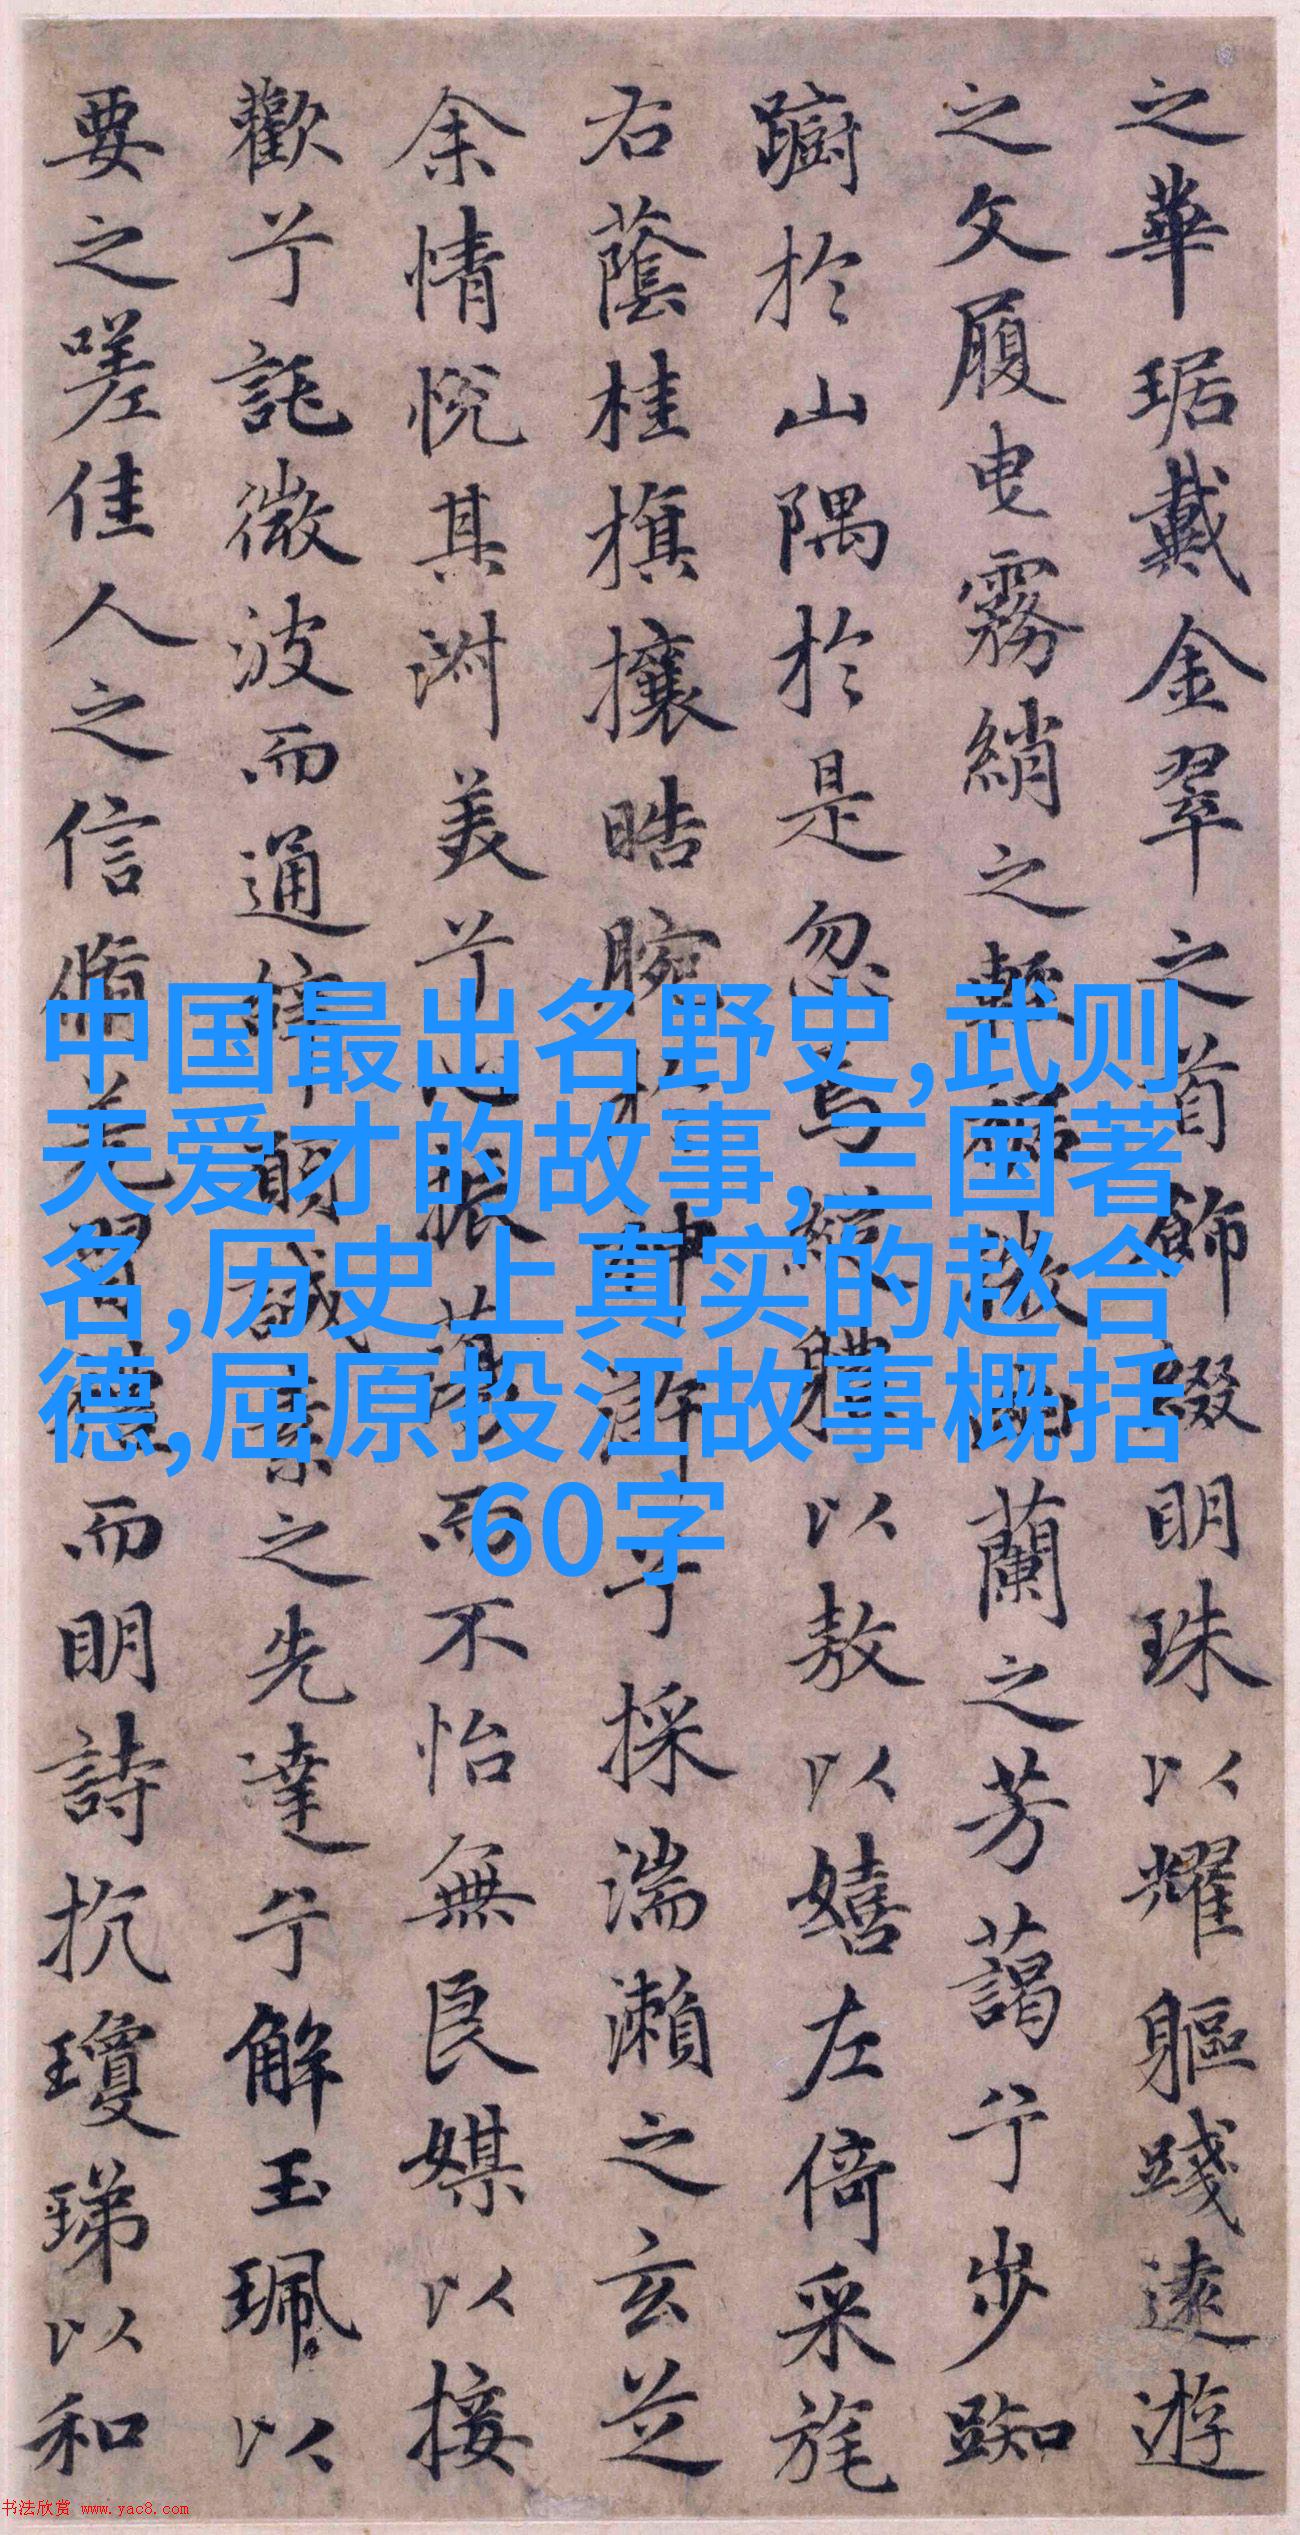 之華琚戴金翠之首飾綴明珠以耀軀踐遠遊
之文履曳霧綃之輕裾微幽蘭之芳藹兮步踟
躕於山隅於是忽焉縱體以敖以嬉左倚采旄
右蔭桂旗攘皓腕於神滸兮採湍瀨之玄芝
余情悅其淑美兮心振蕩而不怡無良媒以接
歡兮託微波而通辭願誠素之先達兮解玉珮以
要之嗟佳人之信脩羌習禮而明詩抗瓊珶以和
中国最出名野史,武则
天爱才的故事,三国著
名,历史上真实的赵合
德,屈原投江故事概括
60字
书法欣赏 www.yac8.com